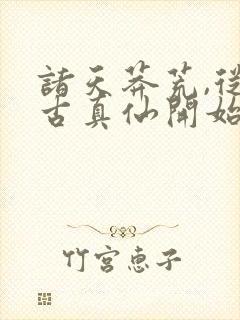 諸天莽荒,從
古真仙開始
竹宮惠子